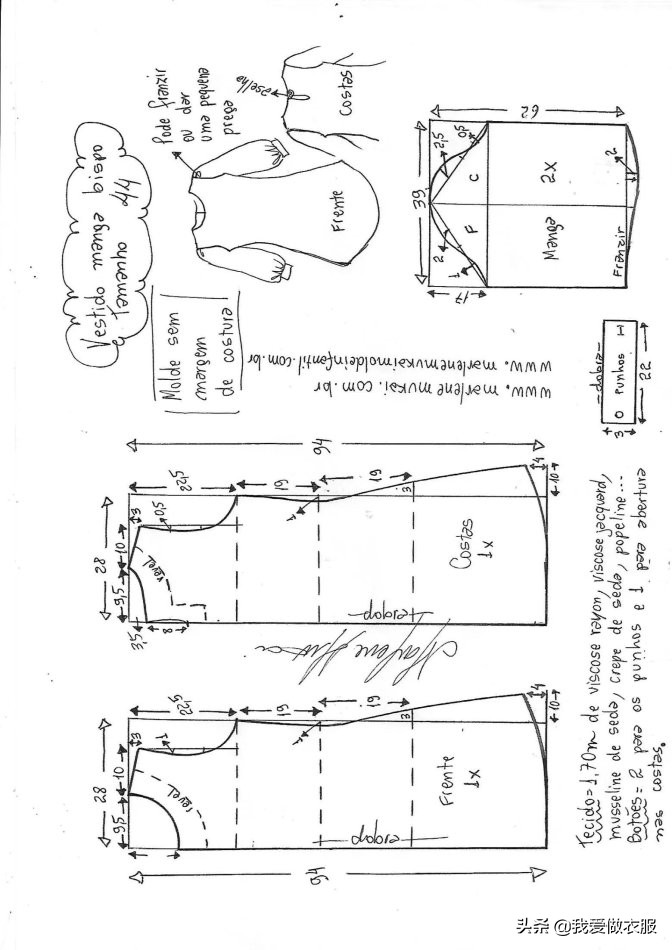 Vestido manga bispo
Tamanho 44
Pode franzir
ou dar
uma pequena
prega
aselha
Costas
Frente
Molde sem
margem
de costura
62
39
17
2,5
0,5
C
2X
2
F
2
1
Manga
Franzir
www.marlenemukai.com.br
www.marlenemukaimoldeinfantil.com.br
dobra
3
punhos
22
94
22,5
19
19
4
10
3
3
0,5
1
10
28
9,5
3,5
8
revel
Costas
1x
dobra
Marlene Mukai
22,5
19
19
4
10
3
3
1
1
10
28
9,5
revel
Frente
1x
dobra
94
Tecido=1,70m de viscose rayon, viscose jacquard,
musseline de seda, crepe de seda, popeline...
Botões= 2 para os punhos e 1 para abertura
nas costas.
头条 @我爱做衣服